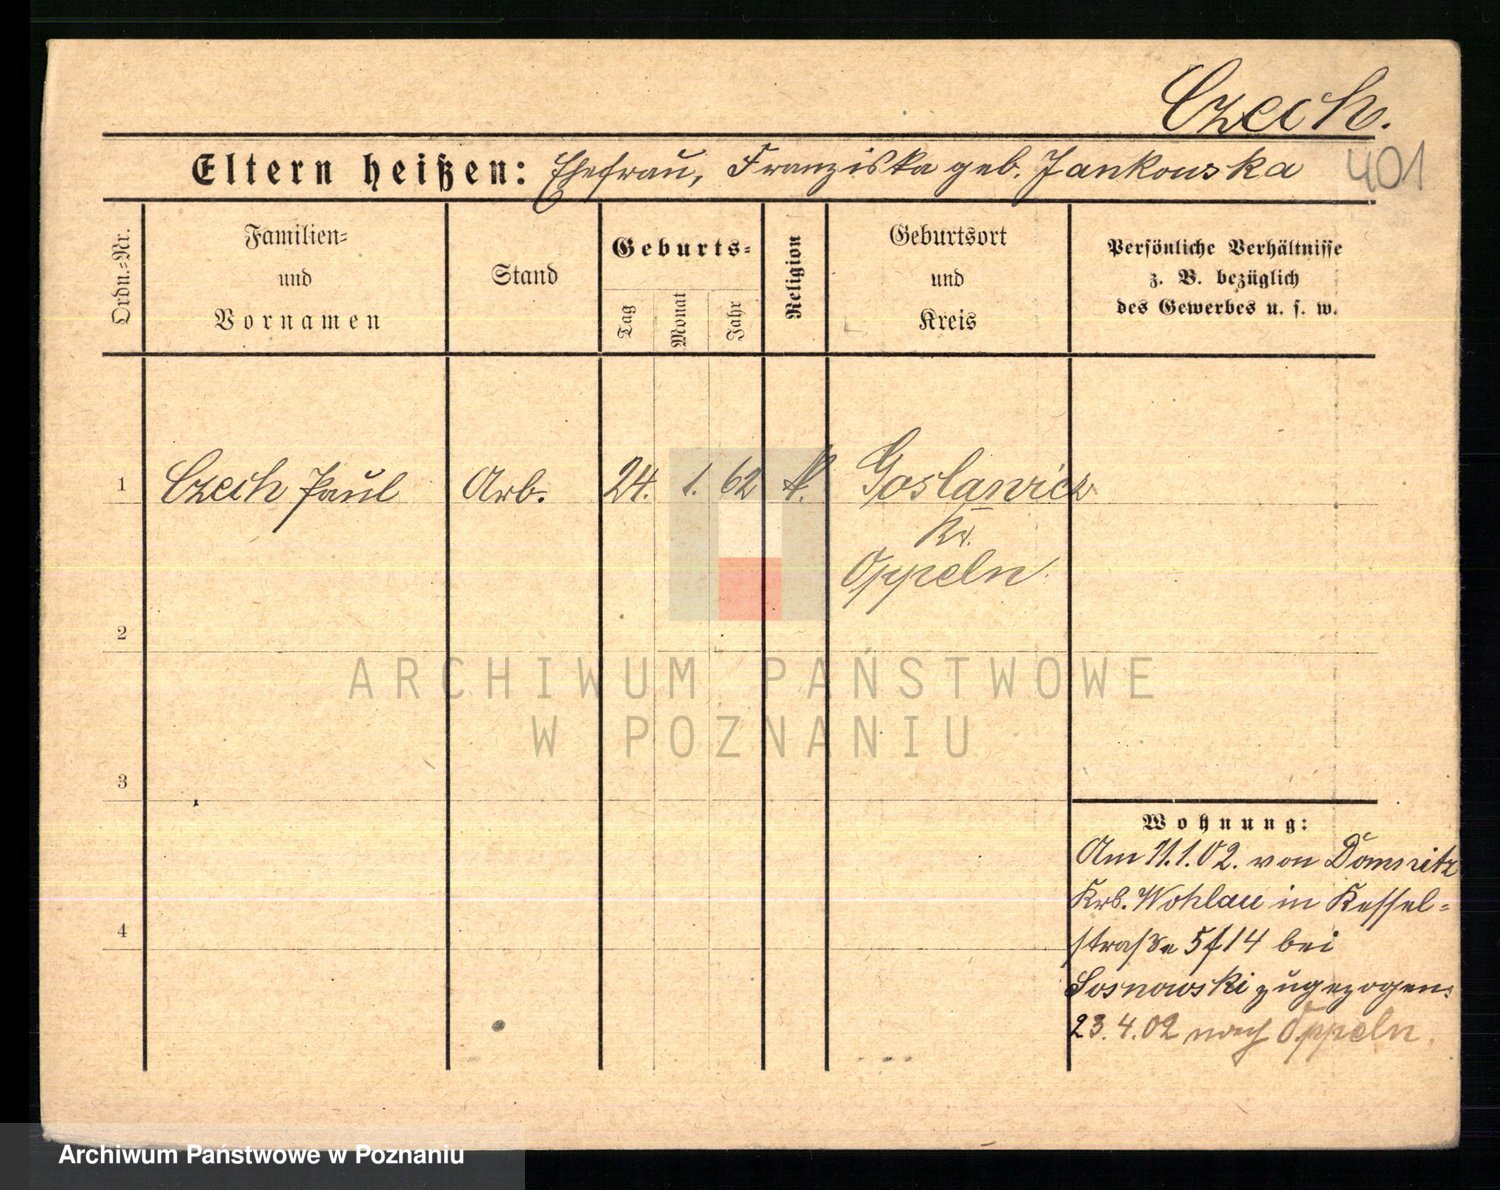 Czech.
Eltern heißen: Ehefrau, Franziska geb. Jankowska 401
Ordn.-Nr.
Familien-
und
Vornamen
Stand
Geburts-
Tag
Monat
Jahr
Religion
Geburtsort
und
Kreis
Persönliche Verhältnisse
z. B. bezüglich
des Gewerbes u. s. w.
1 Czech Paul Arb. 24. 1. 62 Goslawicz
Kr.
Oppeln
2
3
4
ARCHIWUM PAŃSTWOWE
W POZNANIU
Wohnung:
Am 11.1.02. von Domnitz
Krs. Wohlau in Kessel-
straße 5 f 14 bei
Sosnowski zugezogen.
23.4.02 nach Oppeln.
Archiwum Państwowe w Poznaniu